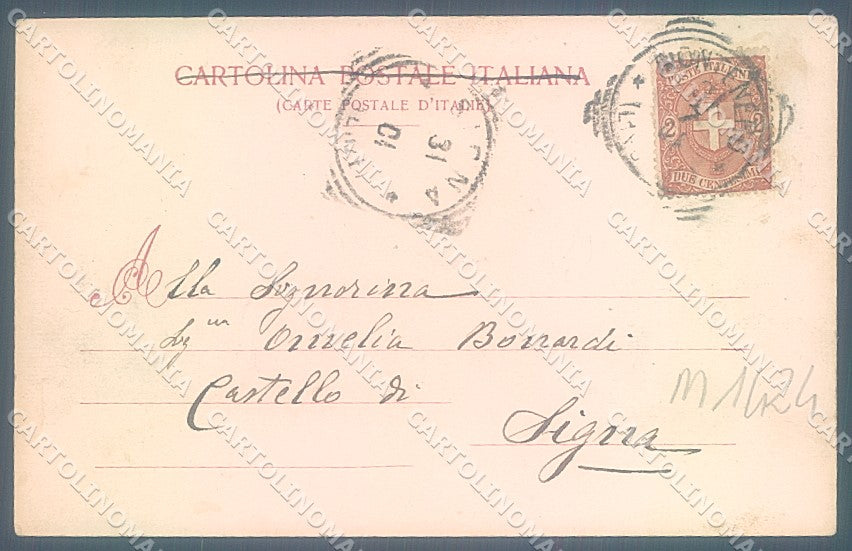 CARTOLINA POSTALE ITALIANA
(CARTE POSTALE D'ITALIE)
POSTE ITALIANE
2 2
DUE CENTESIMI
31
01
Alla Signorina
Sig.na Bonardi
Castello di
Signa
M1424
CARTOLINOMANIA